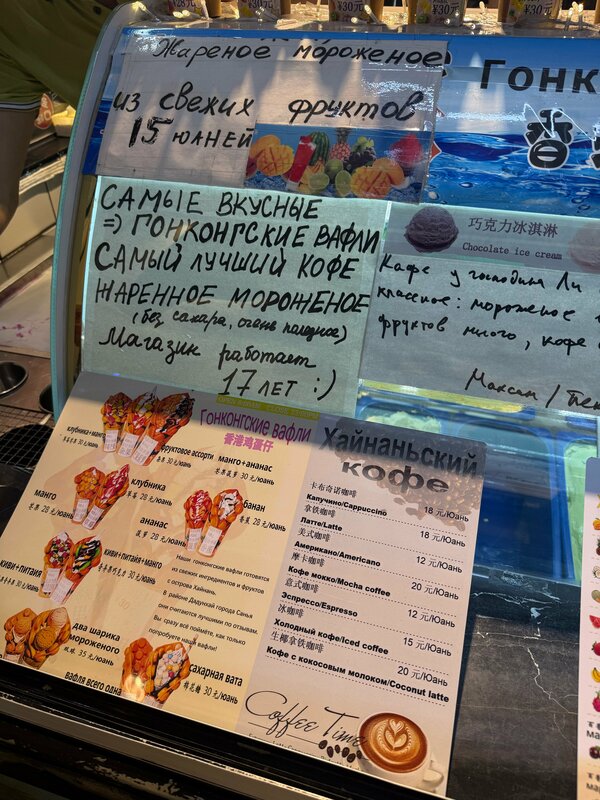 ¥28元
¥30元
¥30元
Жареное мороженое
из свежих фруктов
15 юаней
Гонк
САМЫЕ ВКУСНЫЕ
=> ГОНКОНГСКИЕ ВАФЛИ
САМЫЙ ЛУЧШИЙ КОФЕ
ЖАРЕННОЕ МОРОЖЕНОЕ
(без сахара, очень полезное)
Магазик работает
17 ЛЕТ :)
巧克力冰淇淋
Chocolate ice cream
Кафе у господина Ли
классное: мороженое
фруктов много, кофе
Максим /
Гонконгские вафли
香港鸡蛋仔
клубника+манго
30 元/юань
фруктовое ассорти
30 元/юань
манго+ананас
芒果菠萝 30 元/юань
манго
芒果 28 元/юань
клубника
草莓 28 元/юань
ананас
菠萝 28 元/юань
банан
香蕉 28 元/юань
киви+питайя
30 元/юань
киви+питайя+манго
30 元/юань
два шарика
мороженого
双球 35 元/юань
сахарная вата
棉花糖 30 元/юань
вафля всего одна
Наши гонконгские вафли готовятся
из свежих ингредиентов и фруктов
с острова Хайнань.
В районе Дадунхай города Санья
они считаются лучшими по отзывам.
Вы сразу всё поймёте, как только
попробуете наши вафли!
Хайнаньский
кофе
卡布奇诺咖啡
Капучино/Cappuccino 18 元/Юань
拿铁咖啡
Латте/Latte 18 元/Юань
美式咖啡
Американо/Americano 12 元/Юань
摩卡咖啡
Кофе мокко/Mocha coffee 20 元/Юань
意式咖啡
Эспрессо/Espresso 12 元/Юань
冰咖啡
Холодный кофе/Iced coffee 15 元/Юань
生椰拿铁咖啡
Кофе с кокосовым молоком/Coconut latte 20 元/Юань
Coffee Time